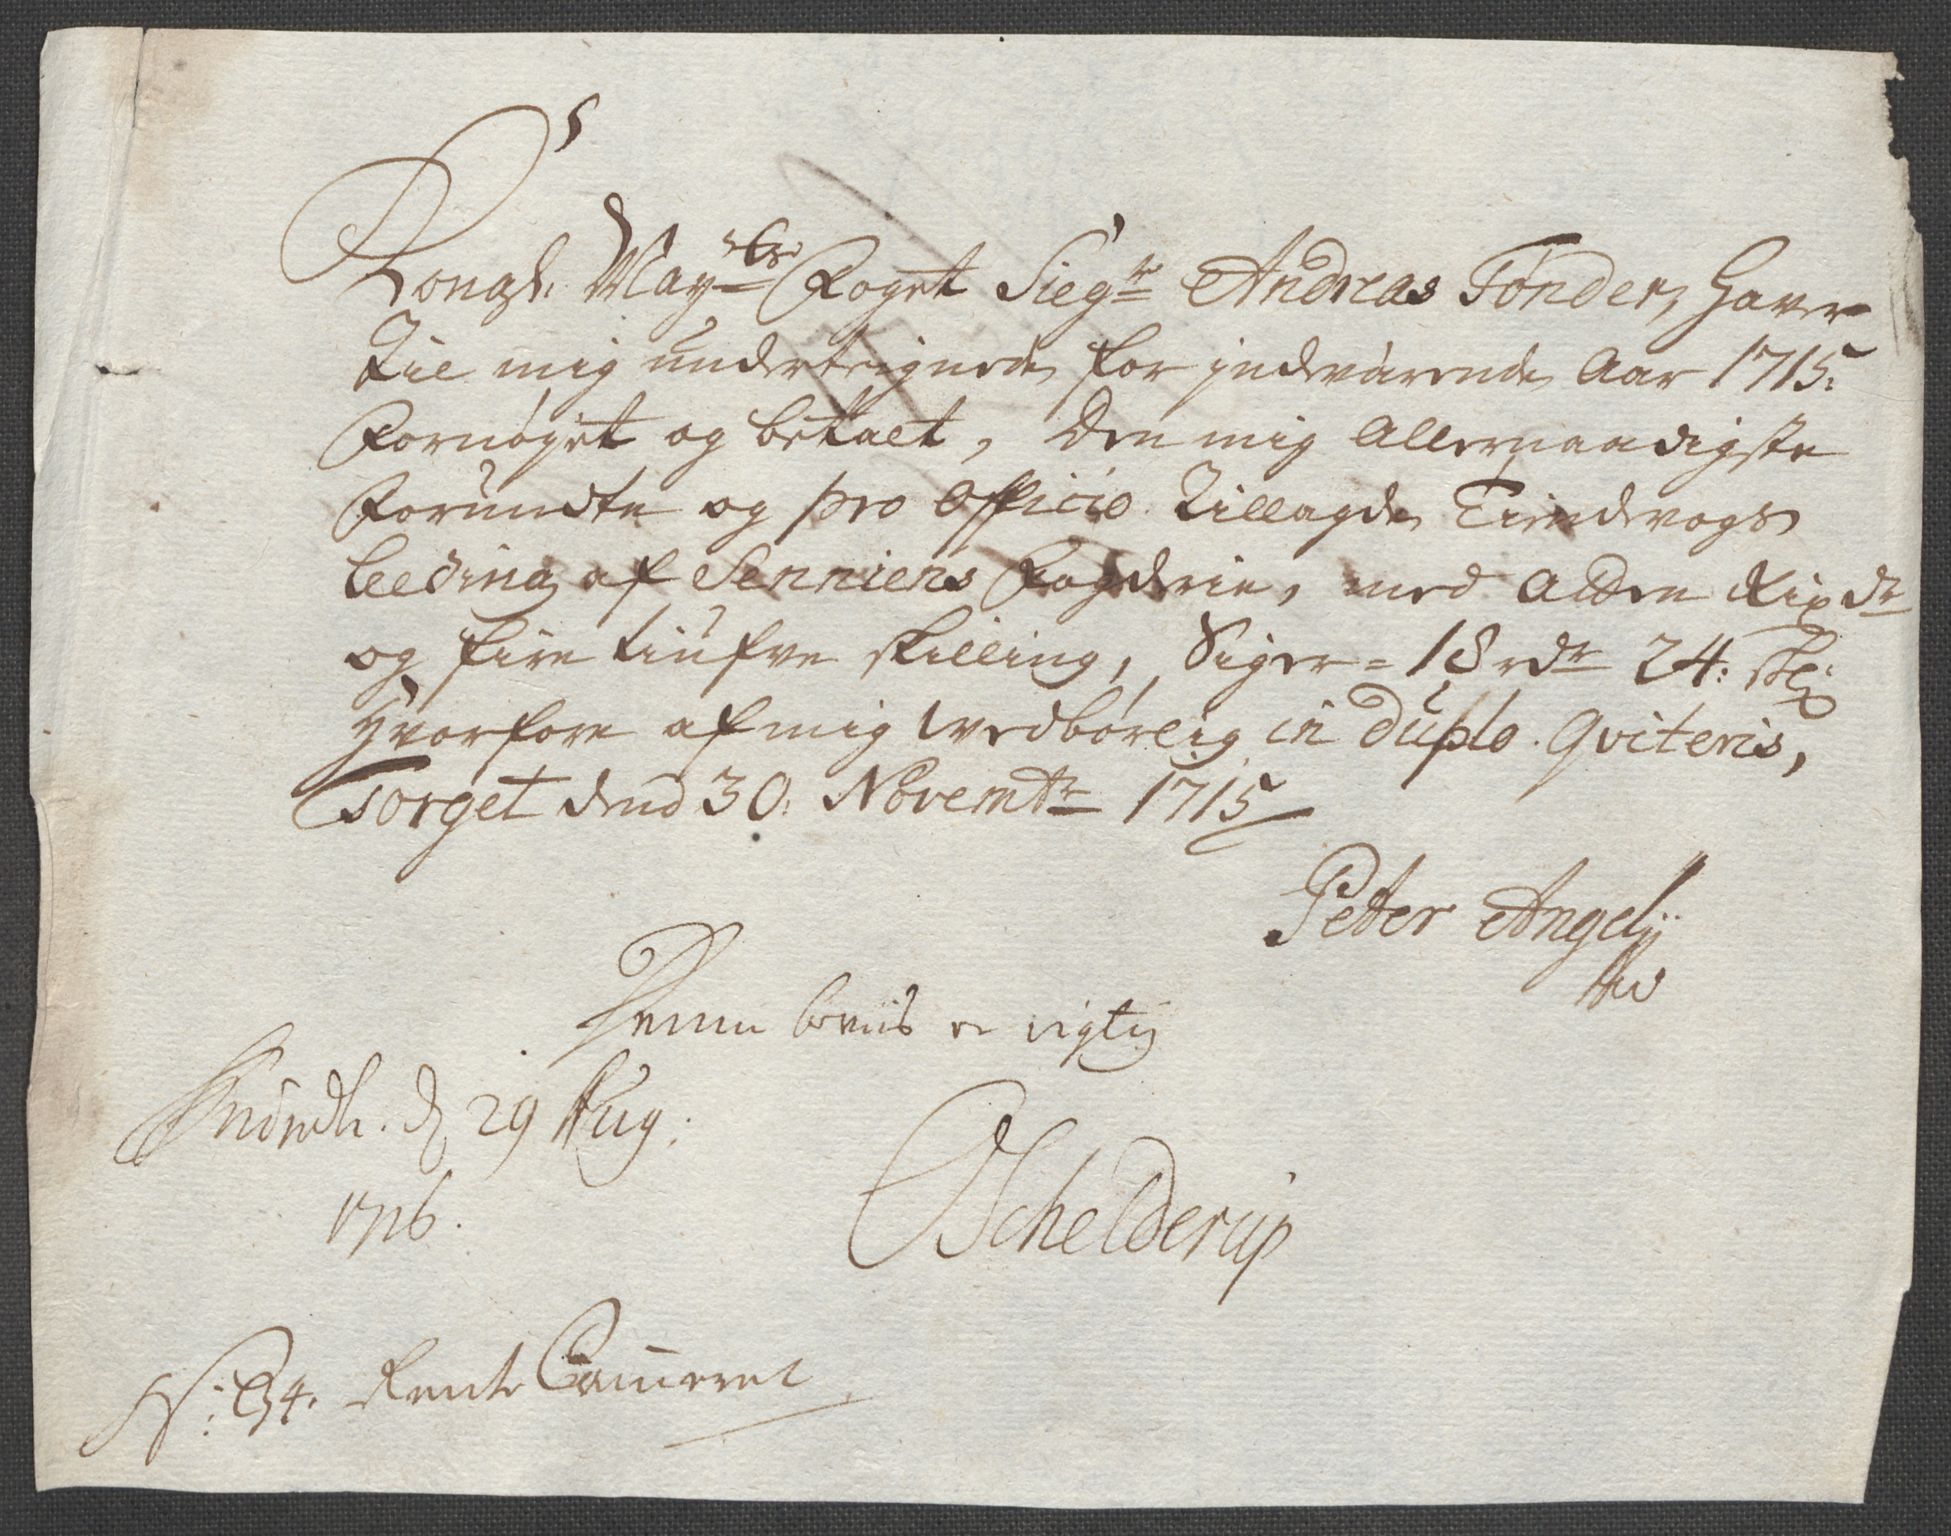 Kongl. May:ts Foget Siegr Andreas Tønder, Haver
Til mig underteignede for indværende Aar 1715.
Fornøyet og betalt, den mig Allernaadigste
Forundte og pro Officio Tillagde
Leeding af Senniens Fogderie, med Atten Rixdr
og fire tiufve skilling, Siger = 18 rdr 24: sk:
Hvorfore af mig vedbørlig in duplo Qviteris,
Torget dend 30. Novembr 1715
Peter Angelj
Denne beviis er rigtig
Trondh. d 29 Aug:
1716.
Schelderup
N: 34. Rente Cammeret